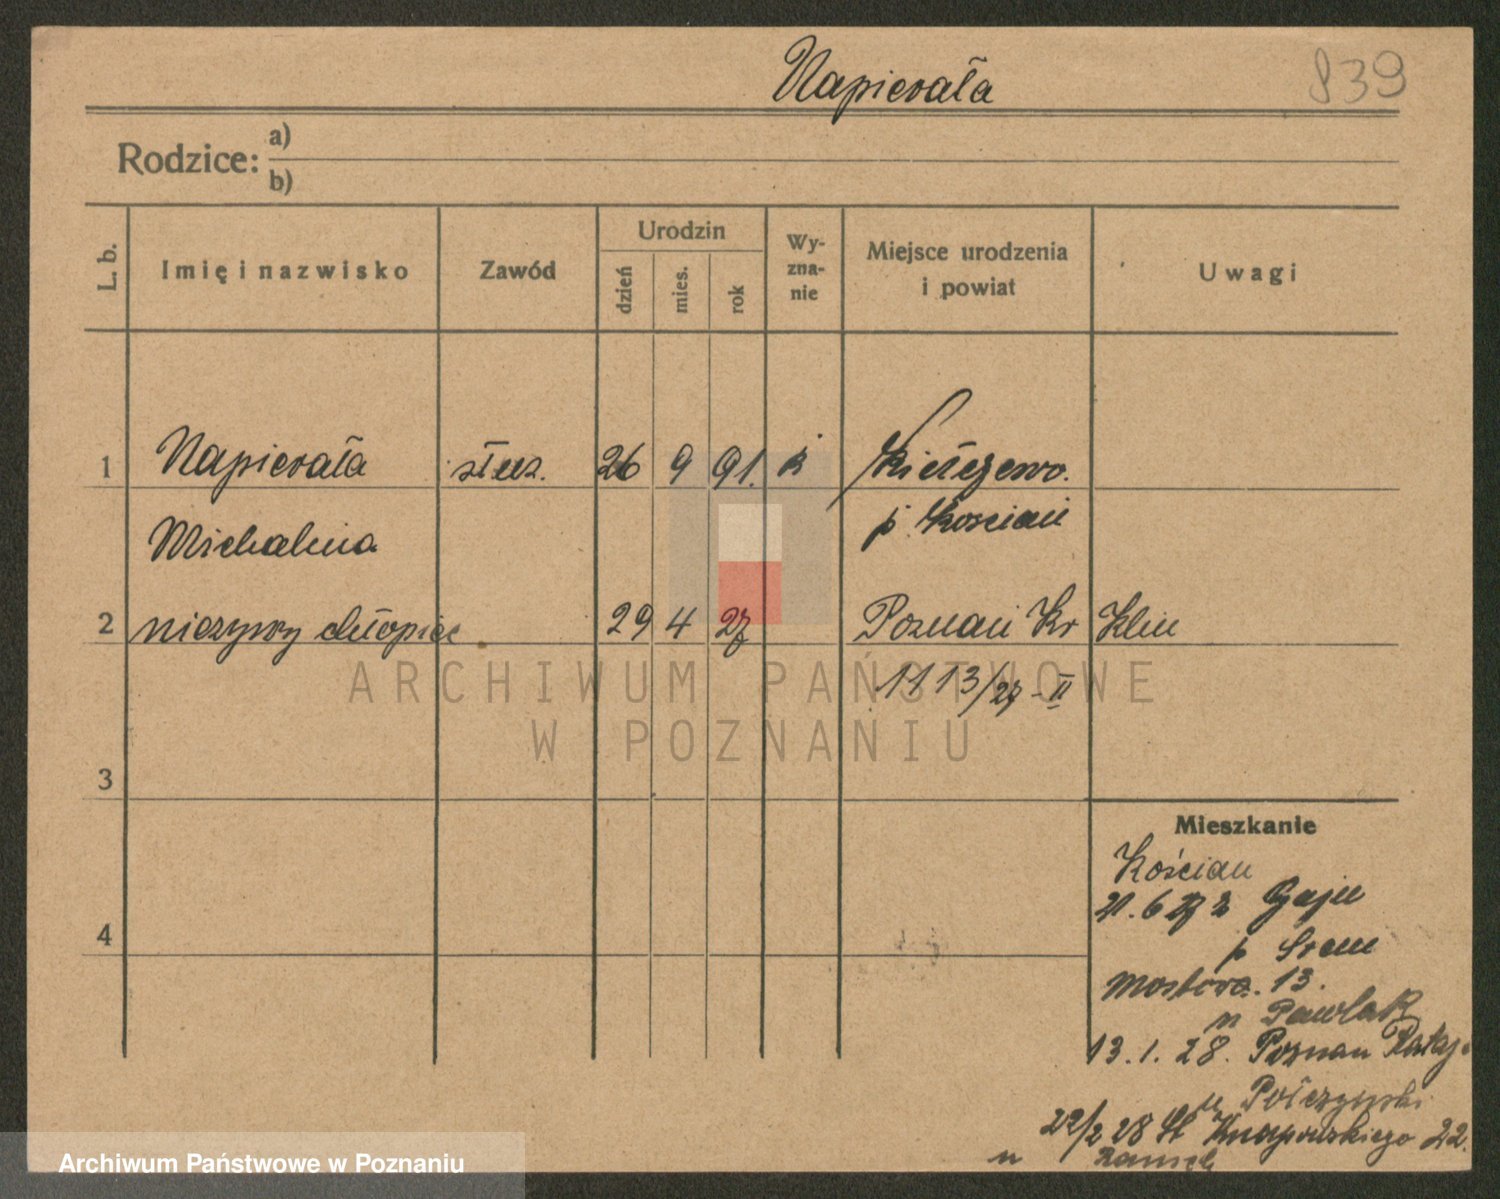 Napierała 839
Rodzice: a)
b)
L. b. Imię i nazwisko Zawód Urodzin dzień mies. rok Wy-zna-nie Miejsce urodzenia i powiat Uwagi
1 Napierała służ. 26 9 91. k Kiełczewo.
Michalina p Kościan
2 nieżywy chłopiec 29 4 27 Poznań Kr Klin
1113/27-II
ARCHIWUM PAŃSTWOWE
W POZNANIU
3
Mieszkanie
Kościan
4
21.6 27 z Gaju
p Srem
Mostowa. 13.
u Pawlak
13.1.28. Poznan Rataj.
u Połczyński
22/2 28 Knapowskiego 22.
u
Archiwum Państwowe w Poznaniu